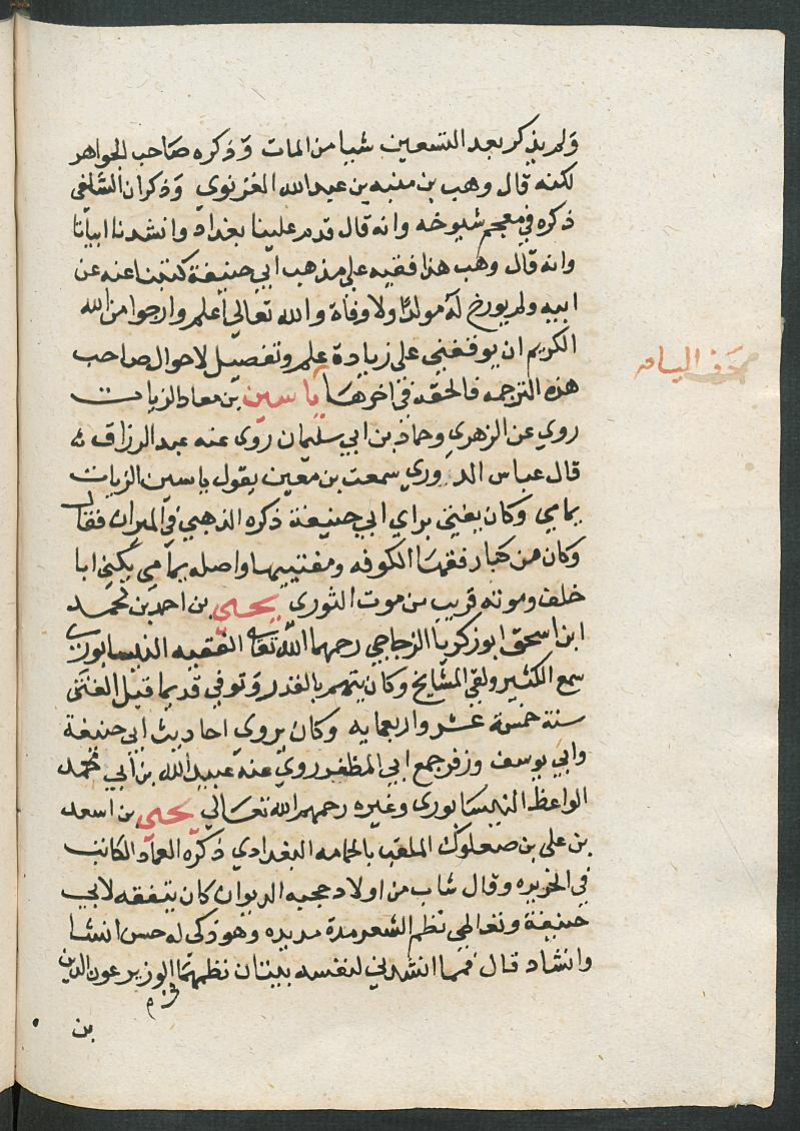 ولم يذكر بعد التسعين شيا من المات وذكره صاحب الجواهر
لكنه قال وهب بن منبه بن عبد الله الغزنوي وذكر ان السلفي
ذكره في معجم شيوخه وانه قال قدم علينا بغداد وانشدنا ابياتا
وانه قال وهب هذا فقيه على مذهب ابي حنيفة كتبنا عنه عن
ابيه ولم يورخ له مولدا ولا وفاة والله تعالي اعلم وارجوا من الله
الكريم ان يوقفني على زيادة علم وتفصيل لاحوال صاحب
حرف الياء
هذه الترجمه فالحقه في اخرها ياسين بن معاد الزيات
روي عن الزهري وحماد بن ابي سليمان روى عنه عبد الرزاق
قال عباس الدوري سمعت بن معين يقول ياسين الزيات
يمامي وكان يفتى براي ابي حنيفة ذكره الذهبي في الميزان فقال
وكان من كبار فقها الكوفه ومفتييها واصله يمامي يكنى ابا
خلف وموته قريب من موت الثوري يحيى بن احمد بن محمد
ابن اسحق ابو زكريا الزجاجي رحمهما الله تعا الفقيه النيسابوري
سمع الكثير ولقي المشايخ وكان يتهم بالقدر وتوفي قديما قبل الفتن
سنة خمسة عشر واربعمايه وكان يروي احاديث ابي حنيفة
وابي يوسف وزفر جمع ابي المظفر روي عنه عبيد الله بن ابي محمد
الواعظ النيسابورى وغيره رحمهم الله تعالي يحيى بن اسعد
بن على بن صعلوك الملقب بالحمامه البغدادي ذكره العماد الكاتب
في الخريده وقال شاب من اولاد حجبه الديوان كان يتفقه لابي
حنيفة وتعاطي نظم الشعر مدة مديده وهو ذكى له حسن انشا
وانشاد قال فمما انشدني لنفسه بيتان نظمهما في الوزير عون الدين
بن